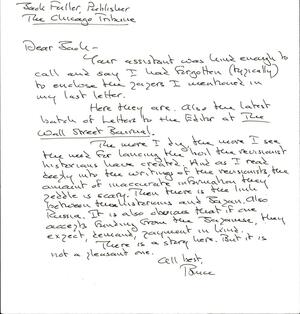 Jack Fuller, Publisher
The Chicago Tribune
Dear Jack -
Your assistant was kind enough to
call and say I had forgotten (typically)
to enclose the papers I mentioned in
my last letter.
Here they are. Also the latest
batch of Letters to the Editor at The
Wall Street Journal.
The more I dug the more I see
the need for lancing the boil the revisionist
historians have created. And as I read
deeply into the writings of the revisionists the
amount of inaccurate information they
peddle is scary. Then there is the link
between the historians and Japan. Also
Russia. It is also obvious that if one
accepts funding from the Japanese, they
expect, demand, payment in kind.
There is a story here. But it is
not a pleasant one.
All best,
Bruce